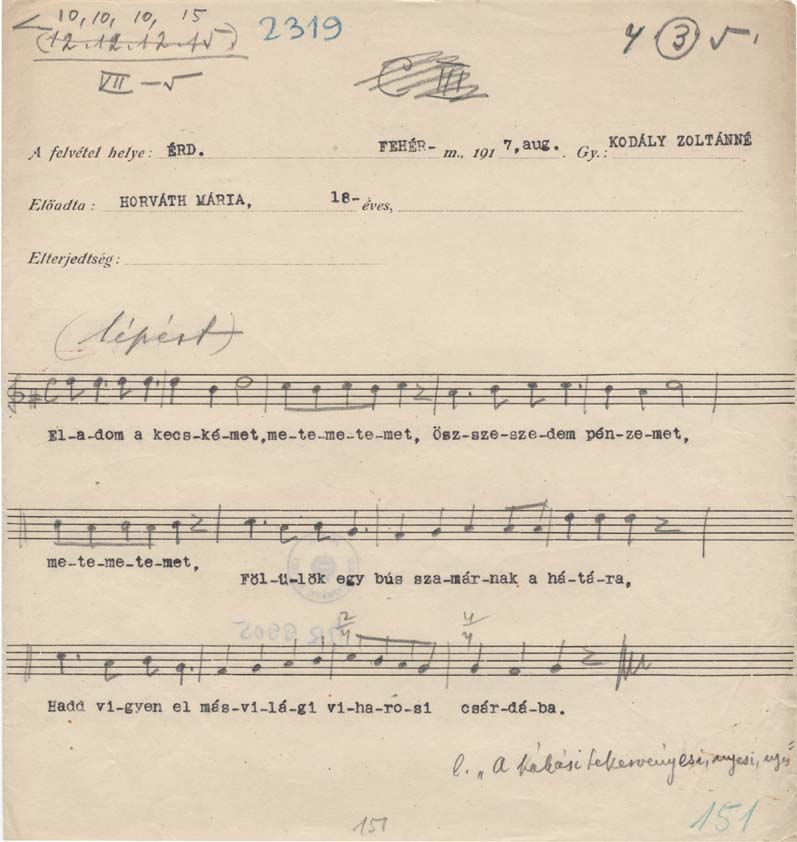 10, 10, 10, 15
(12. 12. 12. 15)
2319
4 ③ 5
VII – 5
C III
A felvétel helye: ÉRD. FEHÉR- m., 1917, aug. Gy.: KODÁLY ZOLTÁNNÉ
Előadta: HORVÁTH MÁRIA, 18- éves,
Elterjedtség:
(lépést)
El-a-dom a kecs-ké-met,me-te-me-te-met, Ösz-sze-sze-dem pén-ze-met,
me-te-me-te-met, Föl-ü-lök egy bús sza-már-nak a há-tá-ra,
2/4 4/4
Hadd vi-gyen el más-vi-lá-gi vi-ha-ro-si csár-dá-ba.
l. „A bákási tekervényesi, nyesi,
151
151